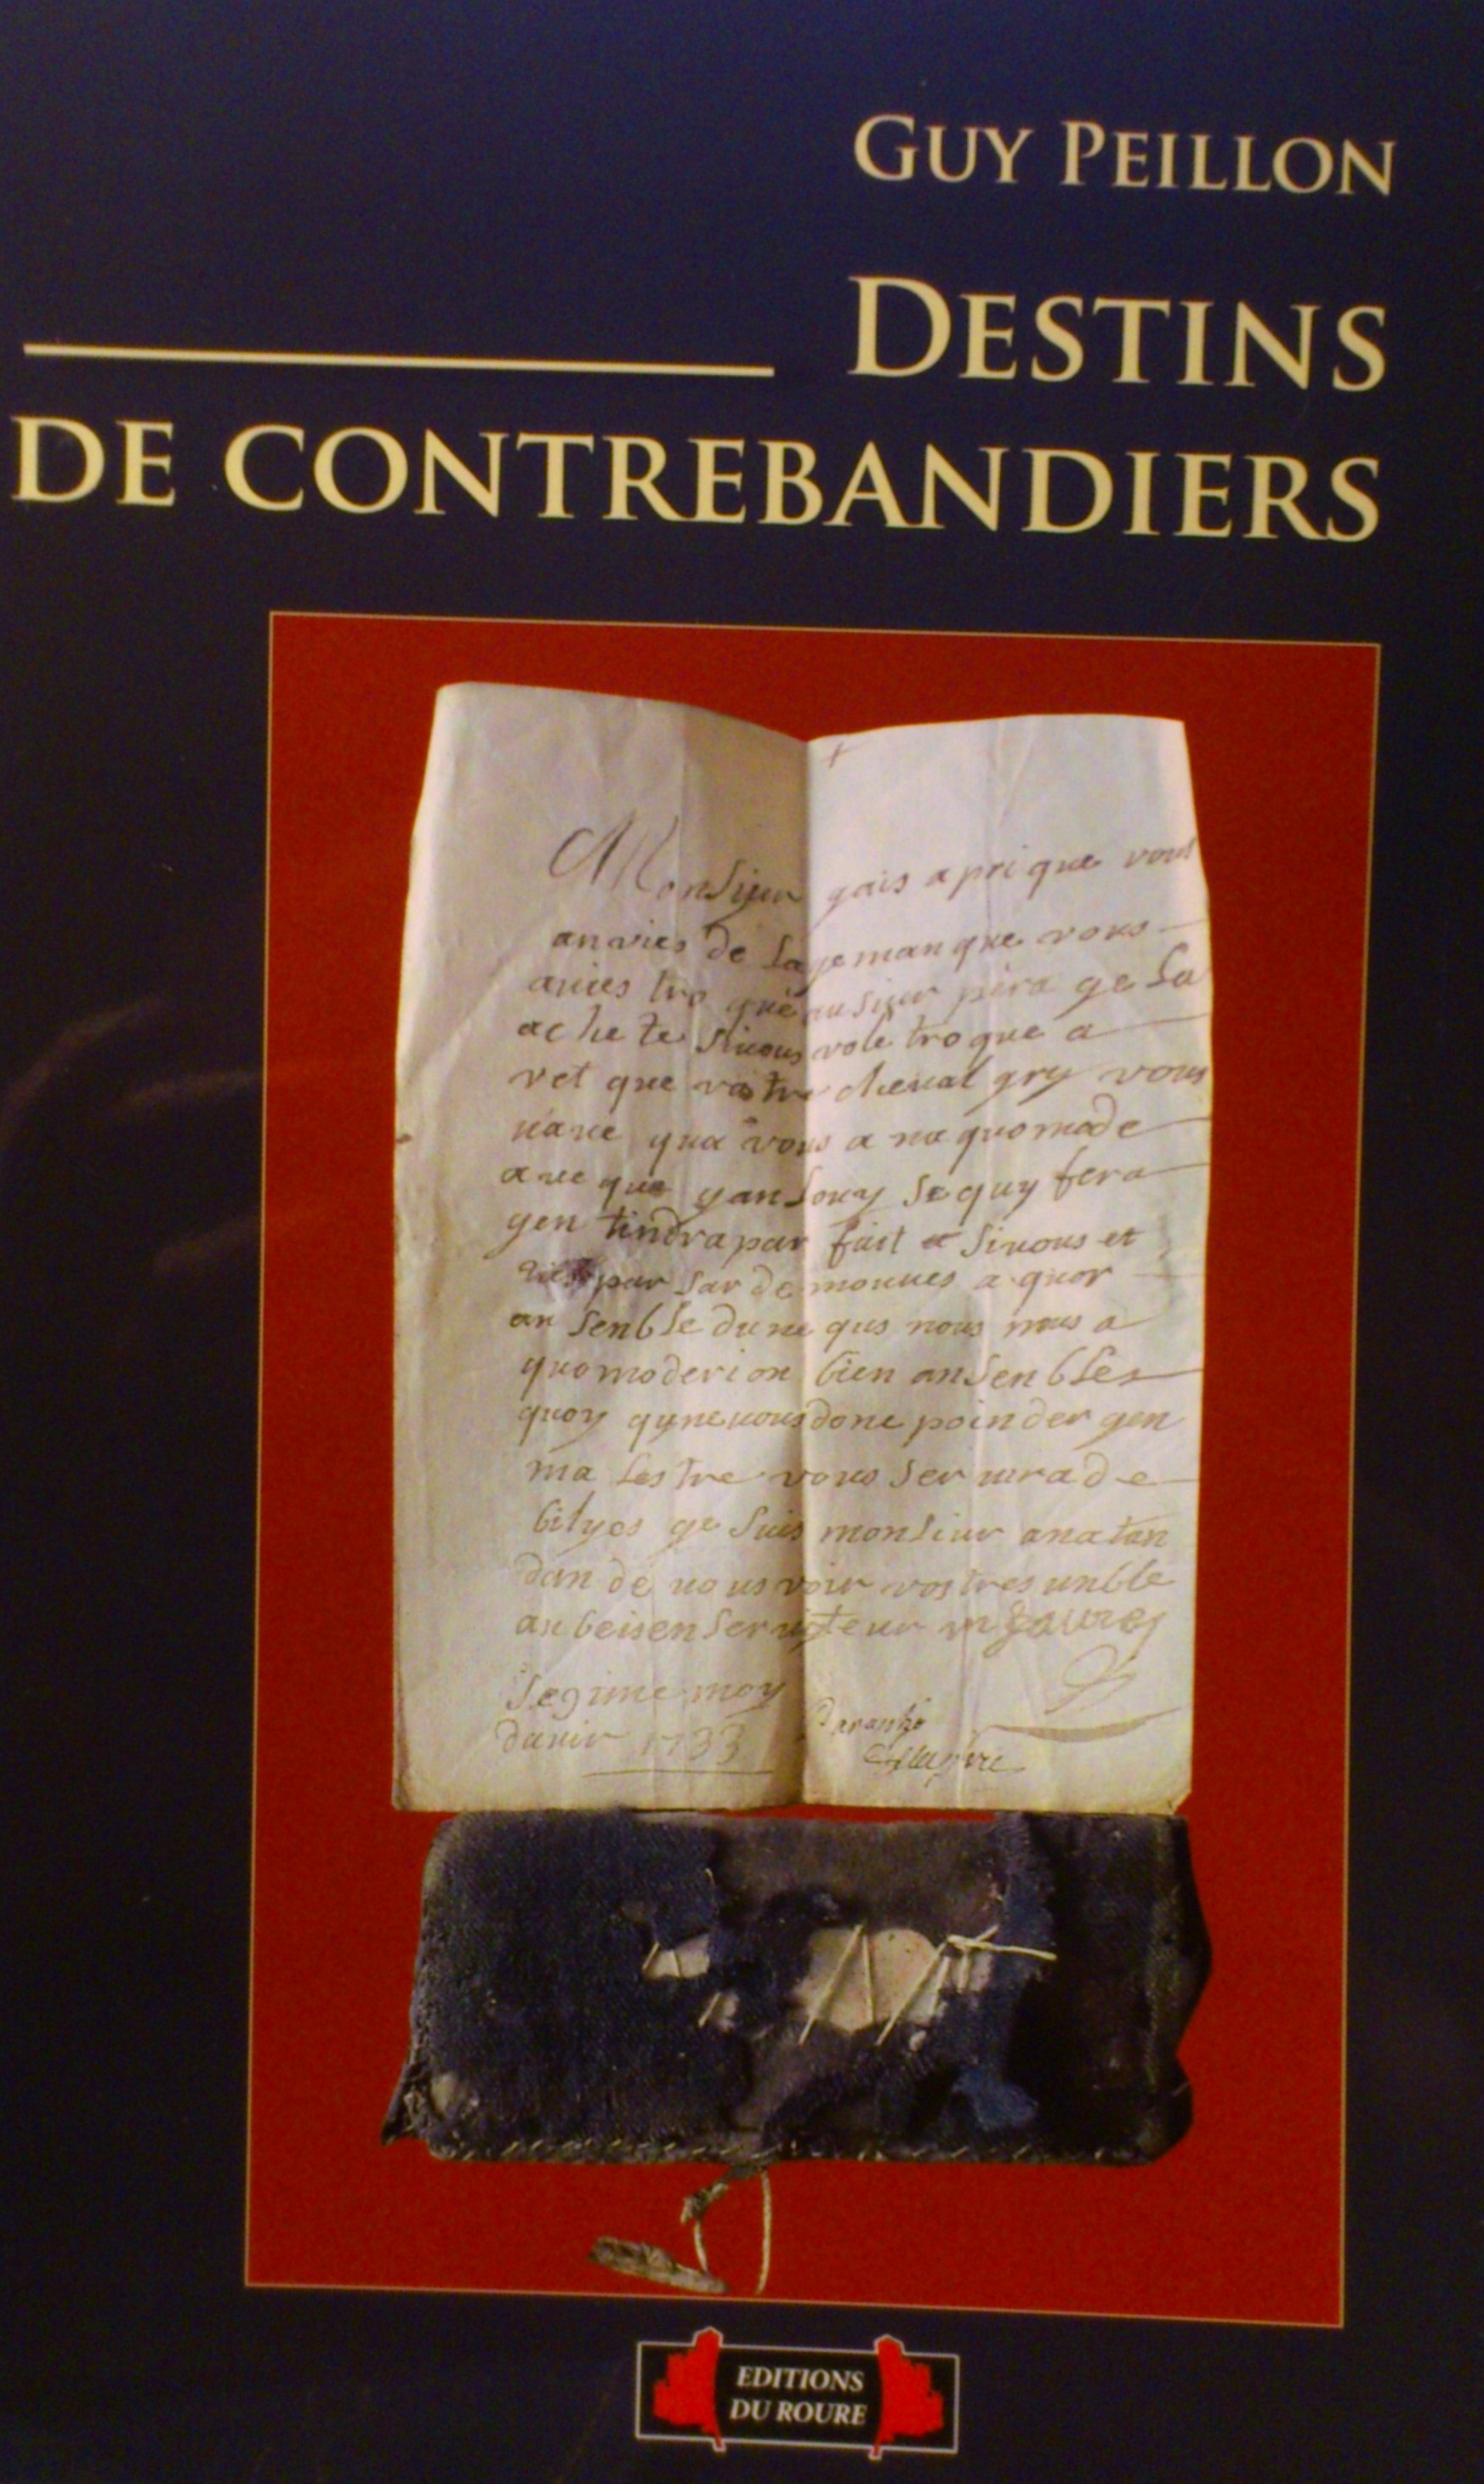 GUY PEILLON
DESTINS
DE CONTREBANDIERS
Monsiur gais apri que vous
anvies de la jeman que vous
avies tro que
achete sivous vole troque a
vet que vostre cheval gry vous
vave qua vous a na quomode
aveque gansouy se quy fera
gen tindra par fait et sivous et
par sar de monues a quor
an senble dune qus nous nous a
quomoderion bien ansenbles
quoy quneuous done poin der gen
ma lestre vous servira de
bilyes ge suis monsiur anatan
dan de vous voir vostres unble
au beisen serviteur
Segime moy
davir 1733
EDITIONS
DU ROURE